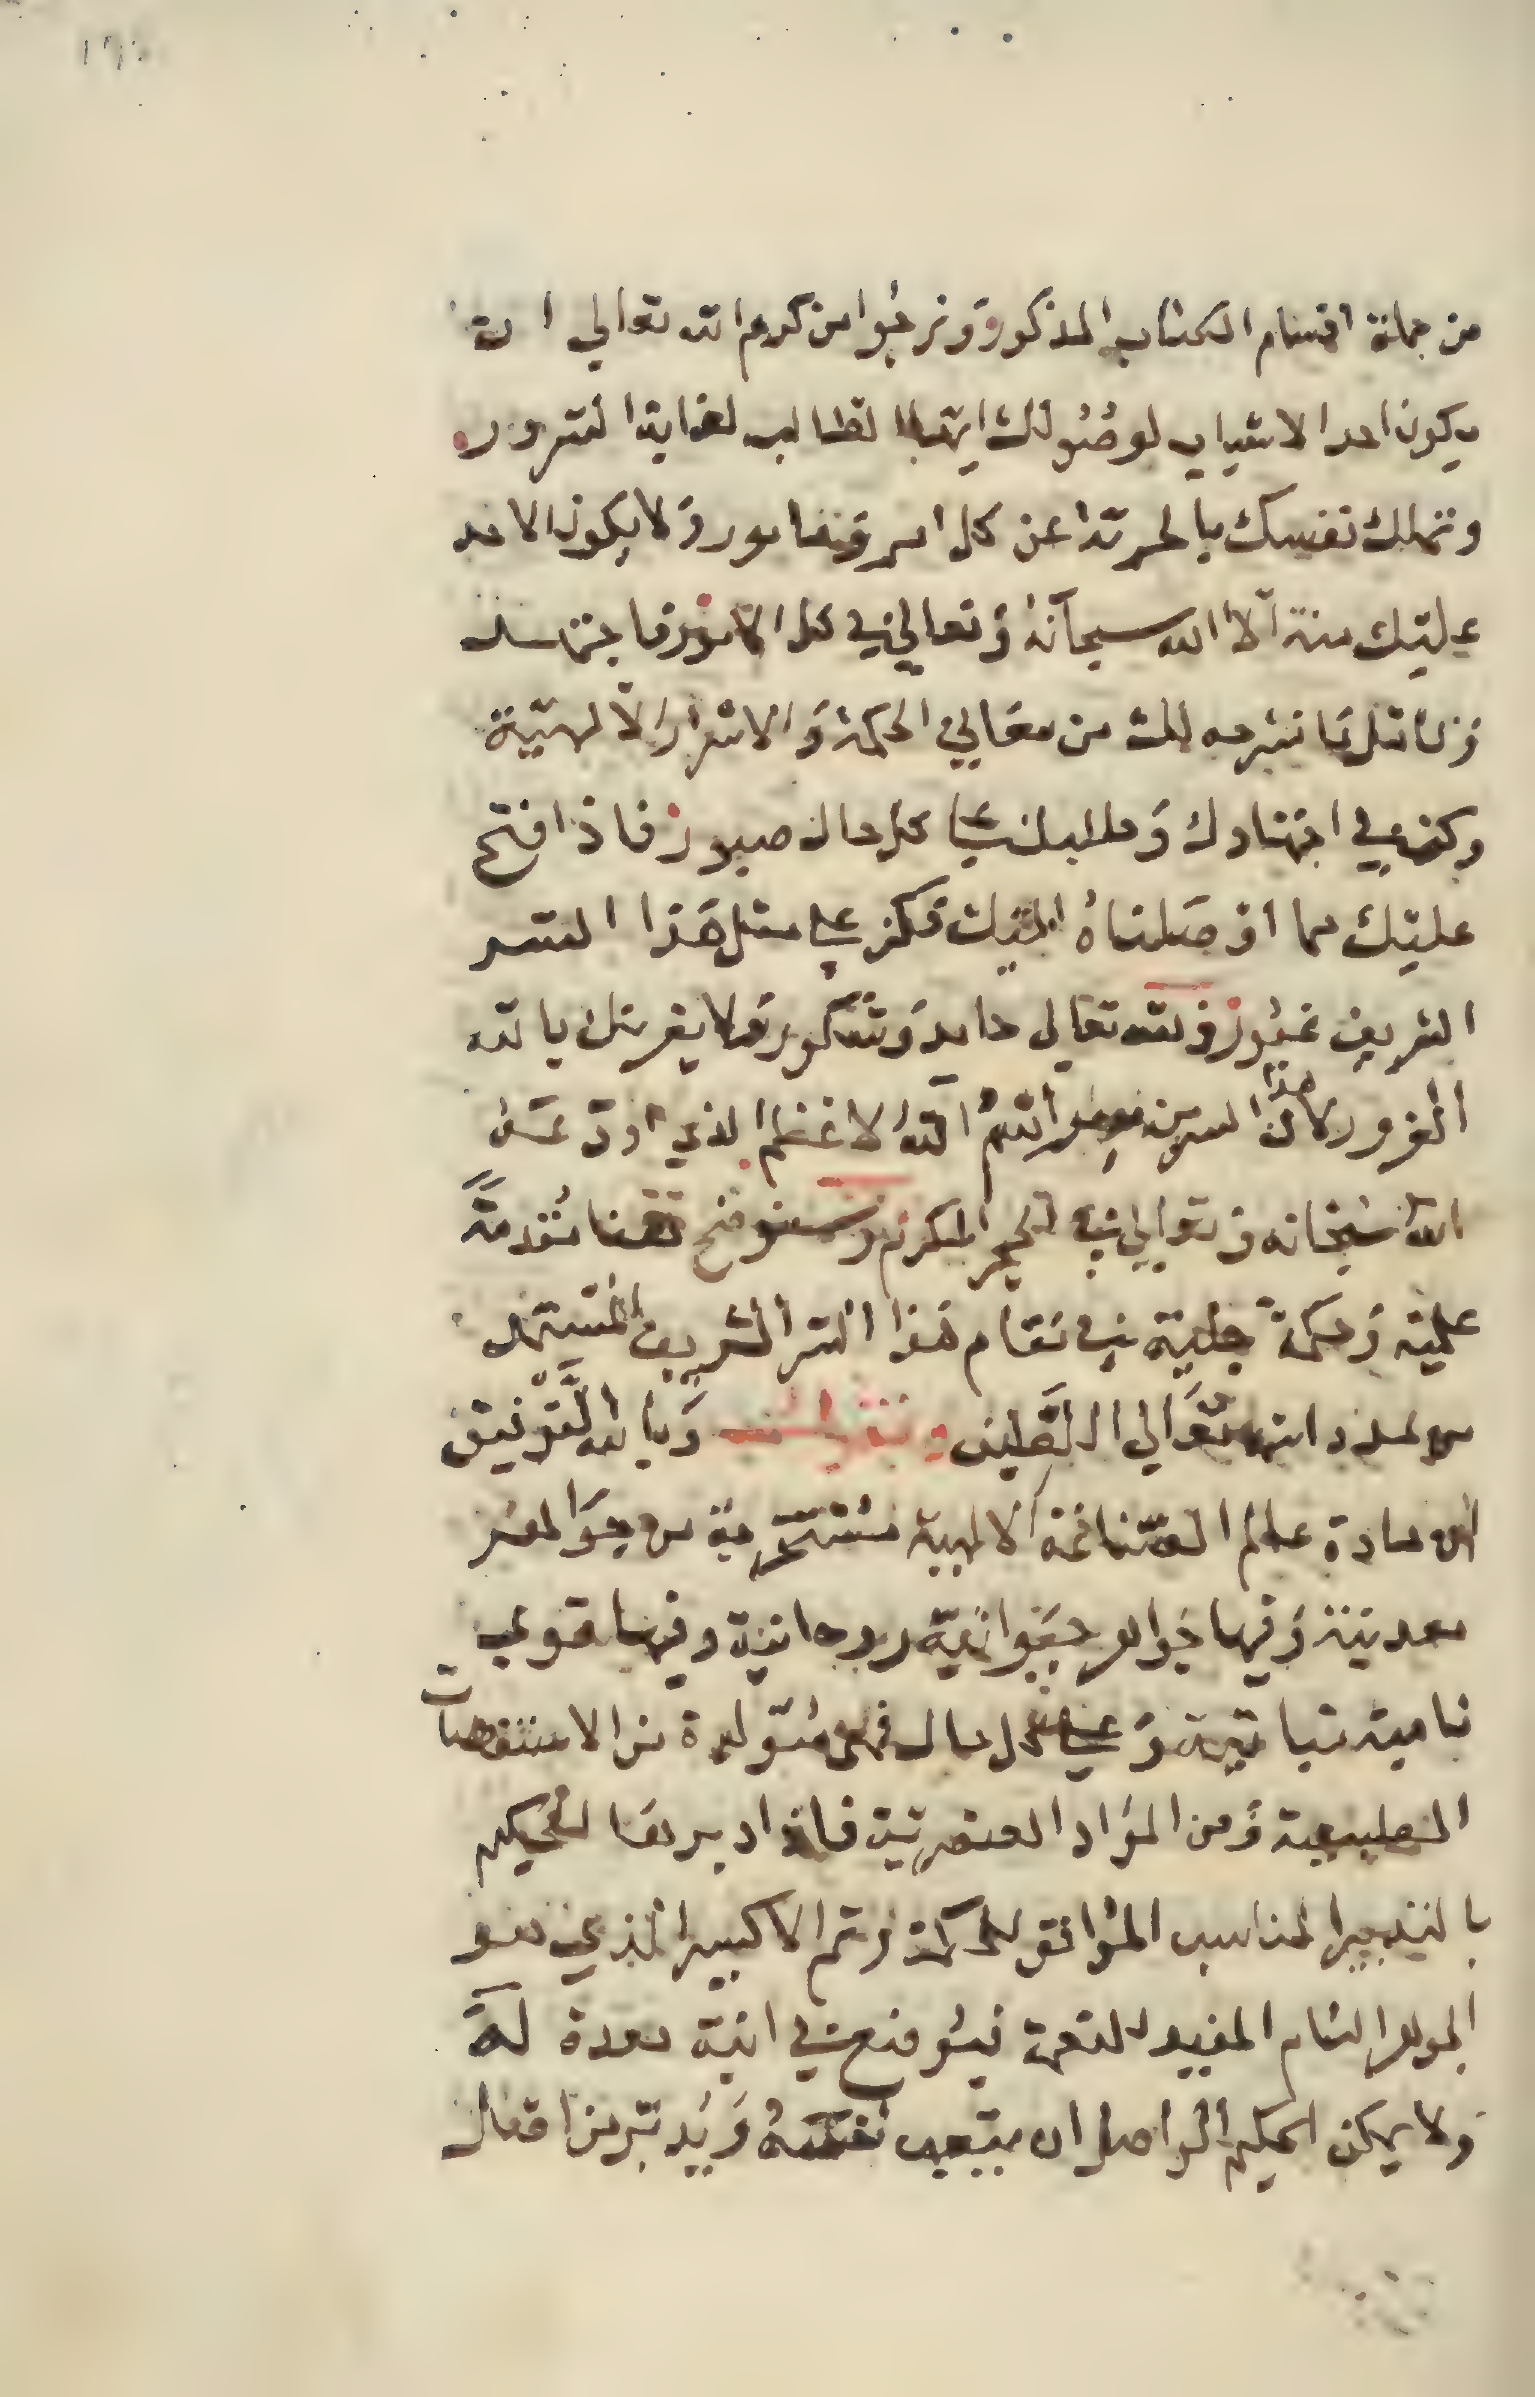 من جملة اقسام الكتاب المذكور ونرجوا من كرم الله تعالى انه
يكون احد الاسباب لوصولك ايها الطالب لغاية السرور
وتملك نفسك بالحرية عن كل امر ومامور ولا يكون لاحد
عليك منة الا الله سبحانه وتعالى في كل الامور فاجتهد
وتامل ما نشرحه لك من معاني الحكمة والاسرار الالهية
وكن في اجتهادك وطلبك على كل حال صبور فاذا فتح
عليك مما اوصلناه اليك فكن على مثل هذا السر
الشريف غيور ولله تعالى حامد وشكور ولا يغرنك بالله
الغرور لان هذا السر من اسم الله الاعظم الذي اودعه
الله سبحانه وتعالى في الحجر المكرم وسنوضح ههنا مقدمة
علمية وحكمة جلية في مقام هذا السر الشريف المستمد
من مدد الله تعالى اللطيف ونقول وبالله التوفيق
ان مادة علم الصناعة الالهية مستخرجة من جواهر
معدنية وفيها جواهر حيوانية روحانية وفيها قوى
نامية نباتية وعلى كل حال فهي متولدة من الاستقصات
الطبيعية ومن المواد العنصرية فاذا دبرها الحكيم
بالتدبير المناسب الموافق للحكمة وتم الاكسير الذي هو
الجوهر التام المفيد للنعمة فيوضع في انية معدة له
ولا يمكن الحكيم الواصل ان يتعب نفسه ويدبر من اقل